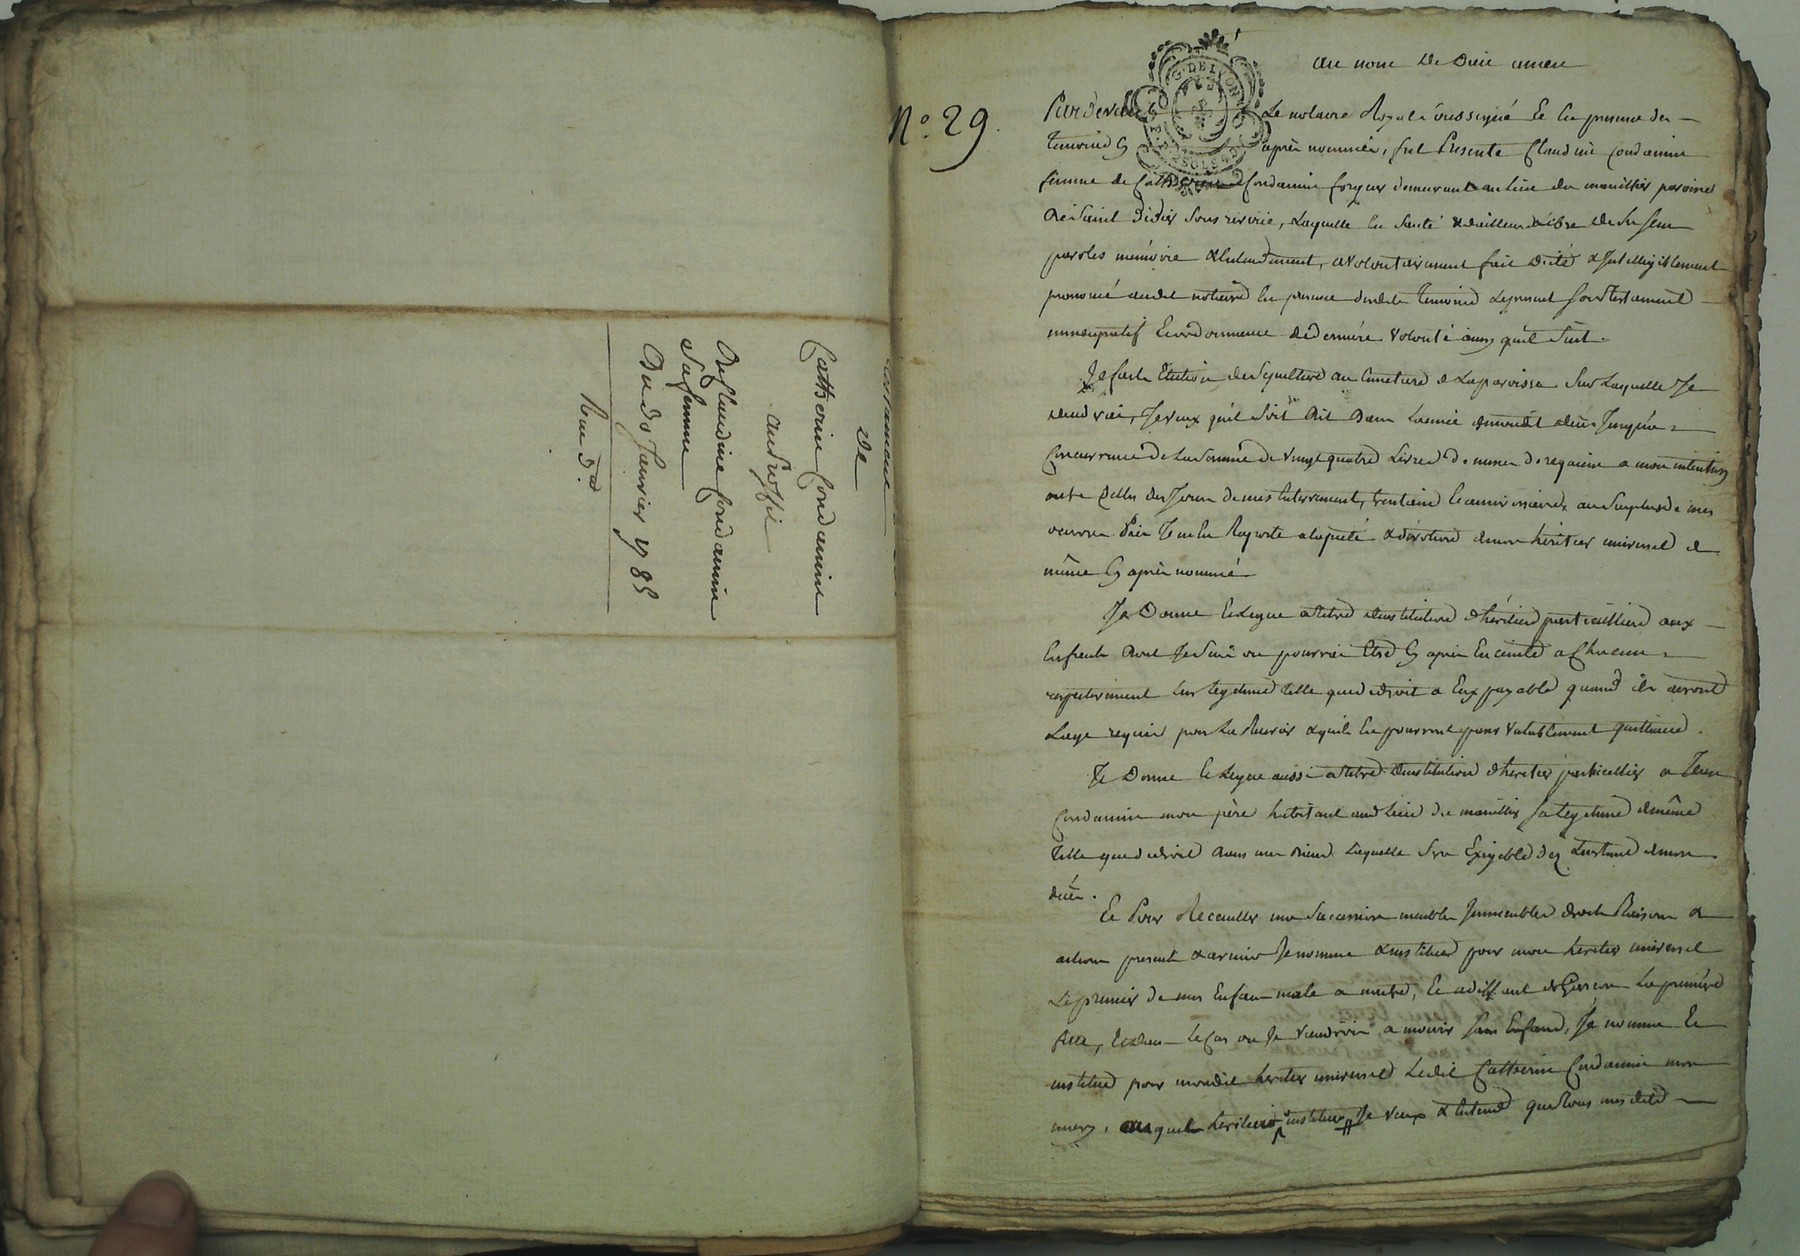 De
Catherin Condamine
au proffit
De Claudine Condamine
Sa femme
Du do Janvier 1785
N°. 29.
G. DE LYON
au nom De Dieu amen
Pardevant Le notaire Royal soussigné Et En presence des
temoins cy après nommés, fut Presente Claudine Condamine
femme de Catherin Condamine forgeur demeurant au lieu du manillier paroisse
De Saint Didier sous riverie, Laquelle En santé & d'ailleurs Libre de ses sens
paroles mémoire & Entendement, a volontairement fait Dicté & Intelligiblement
prononcé audit notaire En presence desdits temoins Le present son testament
nuncupatif Et ordonnance de derniere volonté ainsy qu'il suit.
Je fais Election de sepulture au cimetiere de La paroisse sur Laquelle Je
decederai, Je veux qu'il soit Dit Dans L'année de mondit decès Jusqu'a
Concurrence de La somme de vingt quatre Livres de messes de requiem a mon intention
outre Celles des Jours de mes Enterrement, trentaine & anniversaire, au surplus de mes
oeuvres Pies Je m'en Raporte a la pieté & dévotion de mon héritier universel de
même Cy après nommé
Je Donne & Legue a titre d'institution d'héritier particuilliere aux
Enfents dont Je suis ou pourrai Etre Cy après Enceinte a Chacun
respectivement Leur legitime telle que de droit a Eux payable quand ils auront
L'age requis pour La Recevoir & qu'ils En pourront passer valablement quittance.
Je Donne & Legue aussi a titre d'institution d'héritier particullier a Jean
Condamine mon père habitant audit lieu du manillier sa legitime de même
telle que de droit dans mes biens Laquelle sera Exigible dez L'instant de mon
decès.
Et Pour Recueillir ma succession meubles Immeubles droits Raisons &
actions presents & avenir Je nomme & institue pour mon heritier universel
Le premier de mes Enfans male a naitre, Et a deffaut de Garcon La première
fille, Et dans le cas ou Je viendrois a mourir sans Enfans, Je nomme Et
institue pour mondit heritier universel Ledit Catherin Condamine mon
mary, auquel heritier institué Je veux & Entend que tous mesdits